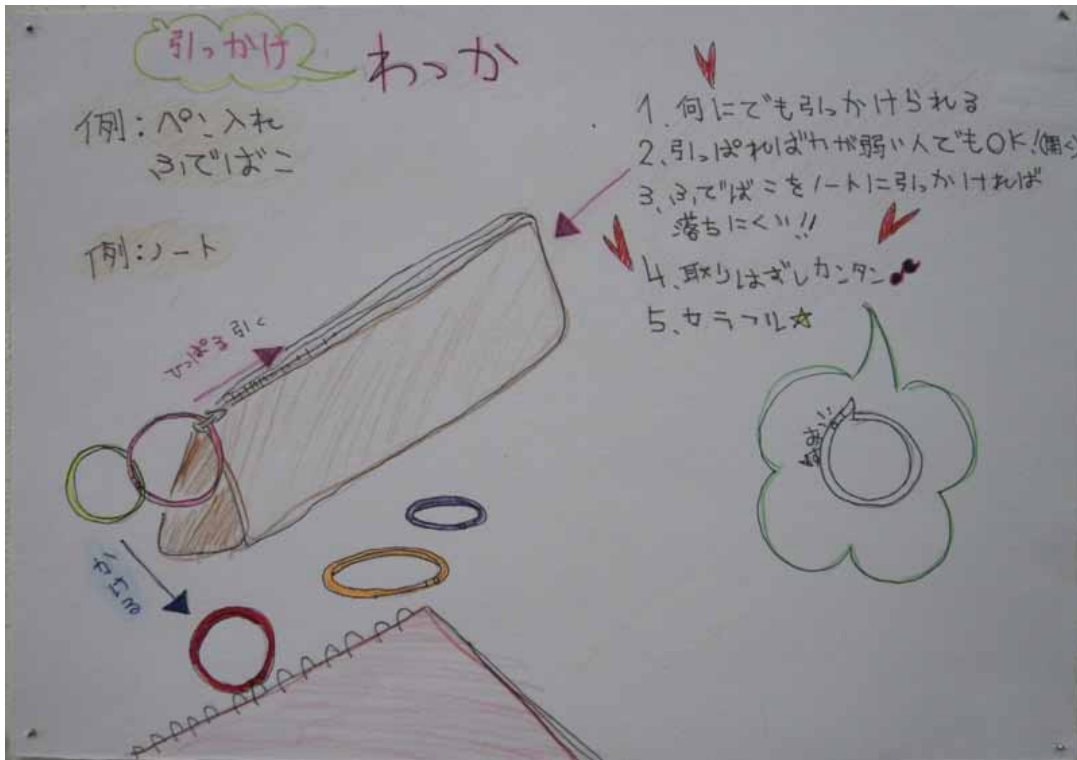 引っかけ わっか
例:ペン入れ
ふでばこ
例:ノート
1.何にでも引っかけられる
2.引っぱれば力が弱い人でもOK!(開く)
3.ふでばこをノートに引っかければ
落ちにくい!!
4.取りはずしカンタン
5.カラフル☆
ひっぱる 引く